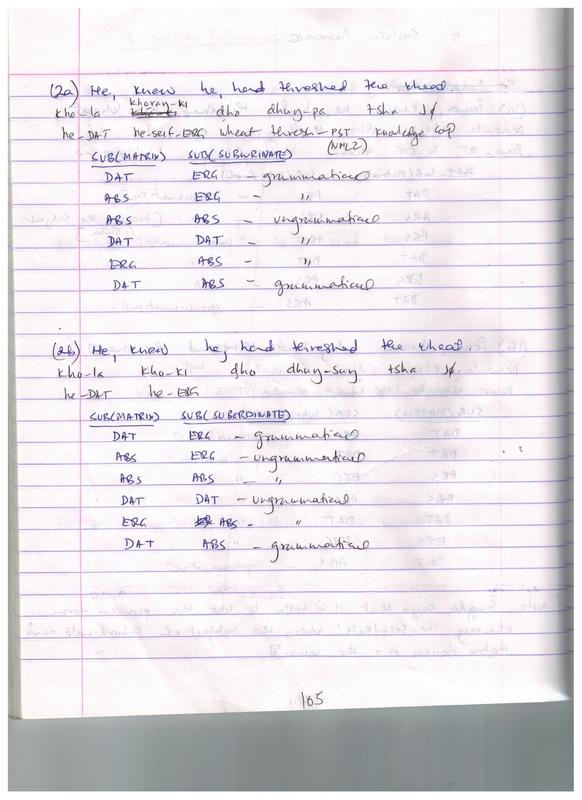 (2a) He, knew he, had threshed the wheat.
khoraŋ-ki
kho-la kho-ki dho dhuŋ-pa tsha jø
he-DAT he-self-ERG wheat thresh-PST knowledge cop
(NMLZ)
SUB(MATRIX) SUB(SUBORDINATE)
DAT ERG - grammatical
ABS ERG - "
ABS ABS - ungrammatical
DAT DAT - "
ERG ABS - "
DAT ABS - grammatical
(2b) He, knew he, had threshed the wheat.
kho-la kho-ki dho dhuŋ-suŋ tsha jø.
he-DAT he-ERG
SUB(MATRIX) SUB(SUBORDINATE)
DAT ERG - grammatical
ABS ERG - ungrammatical
ABS ABS - "
DAT DAT - ungrammatical
ERG ABS - "
DAT ABS - grammatical
105